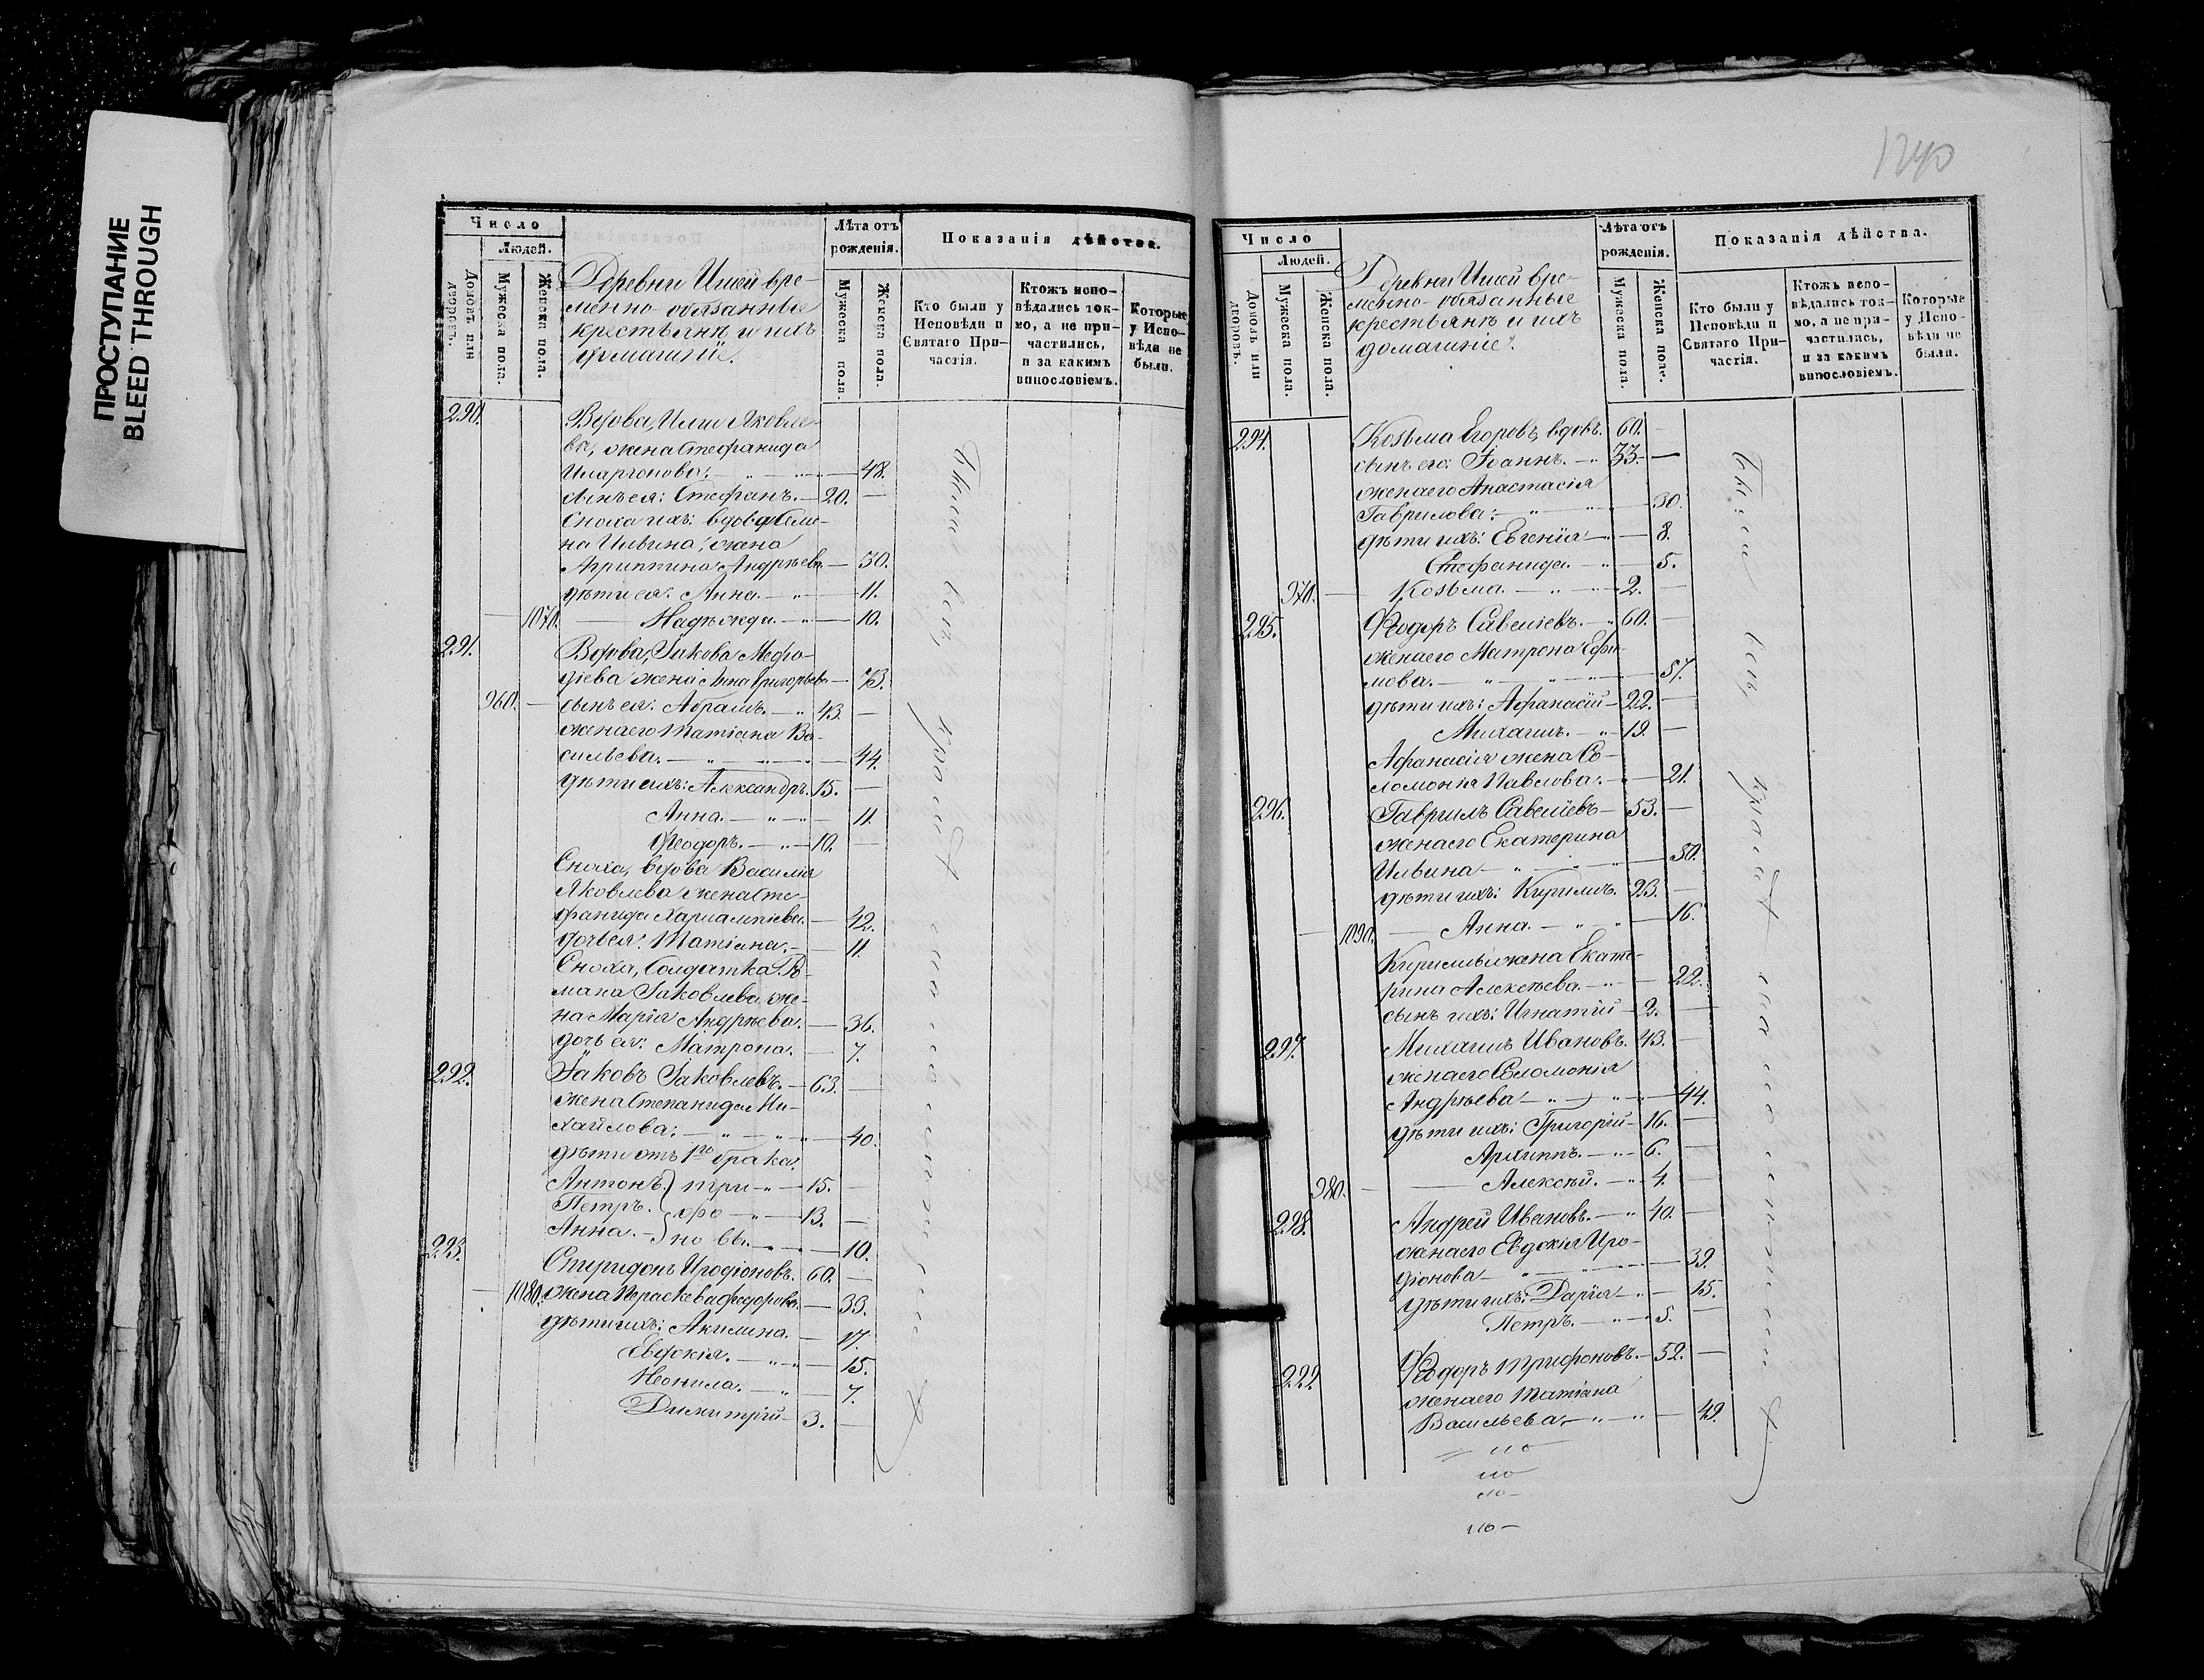 ПРОСТУПАНИЕ
BLEED THROUGH
Число
Людей.
Домовъ или дворовъ.
Мужеска пола.
Женска пола.
Деревни Ишей вре-
менно-обязанные
крестьянъ и ихъ
домашніе.
Лѣта отъ
рожденія.
Мужеска пола.
Женска пола.
Показанія дѣйства.
Кто были у
Исповѣди и
Святаго При-
частія.
Ктожъ испо-
вѣдались ток-
мо, а не при-
частились,
и за какимъ
винословіемъ.
Которые
у Испо-
вѣди не
были.
290. Вдова, Илии Яковле-
ва, жена Стефанида
Иларионова: 48.
сынъ ея: Стефанъ. 20.
Сноха ихъ: вдова
на Ильина, жена
Агриппина Андрѣева 30.
дѣти ея: Анна. 11.
1070. Надѣжда. 10.
291. Вдова, Іакова Мефо-
діева жена Анна Григорьева 73.
960. сынъ ея: Абрамъ. 43.
жена его Татіана Ва-
сильева. 44.
дѣти ихъ: Александръ. 15.
Анна. 11.
Ѳеодоръ. 10.
Сноха, вдова Василія
Яковлева жена Сте-
фанида Харлампіева. 42.
дочь ея: Татіана. 11.
Сноха, Солдатка Ро-
мана Іаковлева же-
на Марія Андрѣева. 36.
дочь ея: Матрона. 7.
292. Іаковъ Іаковлевъ. 63.
жена Степанида Ми-
хайлова: 40.
дѣти отъ 1го брака:
Антонъ. } Три 15.
Петръ. } фо 13.
Анна. } новы. 10.
293. Спиридонъ Иродіоновъ. 60.
1080. жена Параскева Ѳедорова. 33.
дѣти ихъ: Акилина. 17.
Евдокія. 15.
Неонила. 7.
Димитрій 3.
Были всѣ у
1240
Число
Людей.
Домовъ или дворовъ.
Мужеска пола
Женска пола.
Деревни Ишей вре-
менно-обязанные
крестьянъ и ихъ
домашніе.
Лѣта отъ
рожденія.
Мужеска пола.
Женска пола.
Показанія дѣйства.
Кто были у
Исповѣди и
Святаго При-
частія.
Ктожъ испо-
вѣдались ток-
мо, а не при-
частились,
и за какимъ
винословіемъ.
Которые
у Испо-
вѣди не
были.
294. Козьма Егоровъ, вдовъ. 60.
сынъ его: Іоаннъ. 33.
жена его Анастасія
Гаврилова: 30.
дѣти ихъ: Евгенія 8.
Стефанида. 5.
970. Козьма. 2.
295. Ѳеодоръ Савеліевъ. 60.
жена его Матрона Ефи-
мова. 57.
дѣти ихъ: Афанасій 22.
Михаилъ. 19.
Афанасія жена Со-
ломонія Павлова. 21.
296. Гавріилъ Савеліевъ 53.
жена его Екатерина
Ильина 50.
дѣти ихъ: Кириллъ. 23.
1090. Анна. 16.
Кирилы жена Екате-
рина Алексѣева. 22.
сынъ ихъ: Игнатій 2.
297. Михаилъ Ивановъ. 43.
жена его Соломонія
Андрѣева 44.
дѣти ихъ: Григорій 16.
Архиппъ. 6.
980. Алексѣй. 4.
298. Андрей Ивановъ. 40.
жена его Евдокія Иро-
діонова 39.
дѣти ихъ: Дарія 15.
Петръ. 5.
299. Ѳеодоръ Трифоновъ. 52.
жена его Татіана
Васильева 49.
Были всѣ